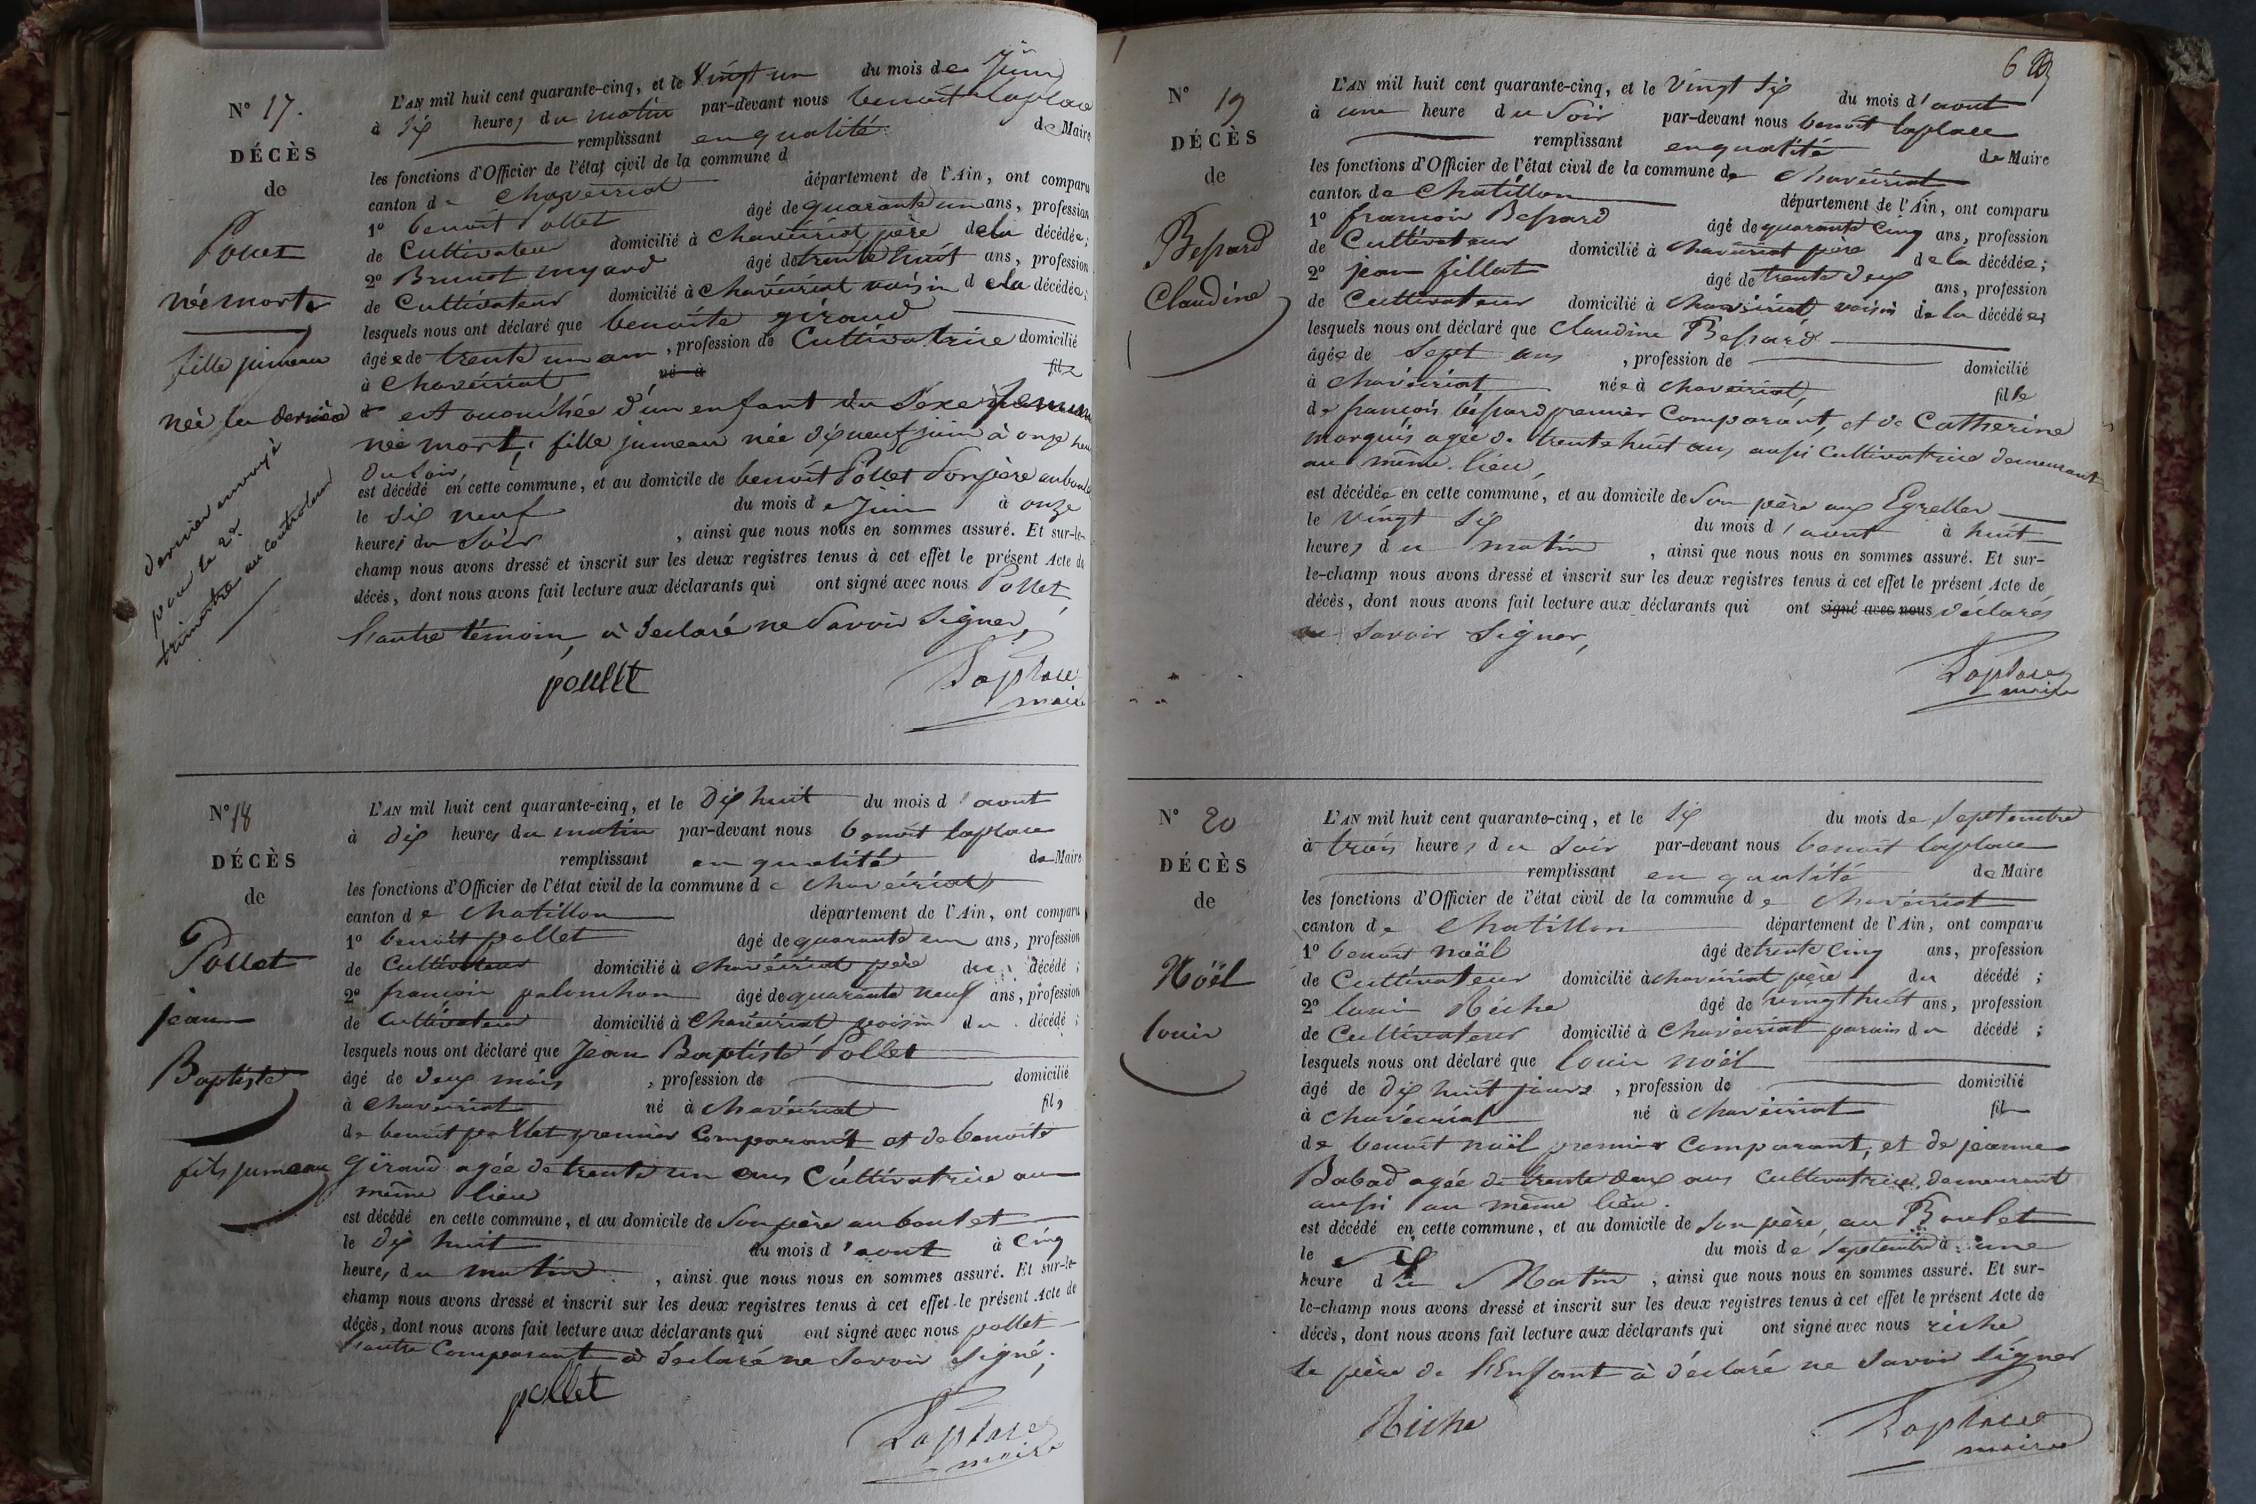 N° 17.
DÉCÈS
de
Pollet
née morte
fille jumeau
née la dernière
dernier envoyé
pour le 2e
trimestre au controleur
L'AN mil huit cent quarante-cinq, et le Vingt un du mois de Juin
à Six heures du matin par-devant nous benoit laplace
remplissant en qualité de Maire
les fonctions d'Officier de l'état civil de la commune d
canton de chaveiriat département de l'Ain, ont comparu
1° benoit Pollet âgé de quarante un ans, profession
de Cultivateur domicilié à chaveiriat père de la décédée;
2° Brunot myard âgé de trente huit ans, profession
de Cultivateur domicilié à chaveiriat voisin de la décédée;
lesquels nous ont déclaré que benoite giraud
âgée de trente un an, profession de Cultivatrice domicilié
à chaveiriat né à fil
est acouchée d'un enfant du Sexe
née mort, fille jumeau née dix neuf juin à onze heu
du soir,
est décédé en cette commune, et au domicile de benoit Pollet Son père au boulet
le dix neuf du mois de Juin à onze
heures du Soir, ainsi que nous nous en sommes assuré. Et sur-le-
champ nous avons dressé et inscrit sur les deux registres tenus à cet effet le présent Acte de
décès, dont nous avons fait lecture aux déclarants qui ont signé avec nous Pollet,
l'autre témoin, à declaré ne Savoir Signer,
pollet
Laplace
maire
N° 18
DÉCÈS
de
Pollet
jean
Baptiste
fils jumeau
L'AN mil huit cent quarante-cinq, et le Dix huit du mois d'aout
à dix heures du matin par-devant nous benoit laplace
remplissant en qualité de Maire
les fonctions d'Officier de l'état civil de la commune de chaveiriat
canton de chatillon département de l'Ain, ont comparu
1° benoit pollet âgé de quarante un ans, profession
de Cultivateur domicilié à chavéiriat père du décédé;
2° francoir palonchon âgé de quarante neuf ans, profession
de Cultivateur domicilié à chavéiriat voisin du décédé;
lesquels nous ont déclaré que Jean Baptiste Pollet
âgé de deux mois, profession de domicilié
à chaveiriat né à chavéiriat fils
de benoit pollet premier Comparant et de benoite
Giraud agée de trente un ans Cultivatrice au
même lieu
est décédé en cette commune, et au domicile de Son père au boulet
le dix huit du mois d'aout à Cinq
heures du matin, ainsi que nous nous en sommes assuré. Et sur-le-
champ nous avons dressé et inscrit sur les deux registres tenus à cet effet le présent Acte de
décès, dont nous avons fait lecture aux déclarants qui ont signé avec nous pollet
l'autre Comparant à déclaré ne Savoir Signé.
pollet
Laplace
maire
N° 19
DÉCÈS
de
Bessard
Claudine
L'AN mil huit cent quarante-cinq, et le Vingt Six du mois d'aout
à une heure du Soir par-devant nous benoit laplace
remplissant en qualité de Maire
les fonctions d'Officier de l'état civil de la commune de chavéiriat
canton de Chatillon département de l'Ain, ont comparu
1° francoir Bessard âgé de quarante Cinq ans, profession
de Cultivateur domicilié à chavéiriat père de la décédée;
2° jean fillat âgé de trente deux ans, profession
de Cultivateur domicilié à chavéiriat voisin de la décédée;
lesquels nous ont déclaré que Claudine Bessard
âgée de Sept ans, profession de domicilié
à chavéiriat née à chaveiriat, fille
de francois béssard premier Comparant, et de Catherine
Marquis agée de trente huit ans, aussi Cultivatrice demeurant
au même lieu,
est décédée en cette commune, et au domicile de Son père aux Egrelles
le vingt Six du mois d'aout à huit
heures du matin, ainsi que nous nous en sommes assuré. Et sur-
le-champ nous avons dressé et inscrit sur les deux registres tenus à cet effet le présent Acte de
décès, dont nous avons fait lecture aux déclarants qui ont signé avec nous déclarés
ne Savoir Signer,
Laplace
maire
N° 20
DÉCÈS
de
Noël
louir
L'AN mil huit cent quarante-cinq, et le Six du mois de Septembre
à trois heures du Soir par-devant nous benoit laplace
remplissant en qualité de Maire
les fonctions d'Officier de l'état civil de la commune de chavéiriat
canton de Chatillon département de l'Ain, ont comparu
1° benoit noël âgé de trente Cinq ans, profession
de Cultivateur domicilié à chaveiriat père du décédé;
2° louir Riche âgé de vingt huit ans, profession
de Cultivateur domicilié à Chaveiriat parain du décédé;
lesquels nous ont déclaré que louir noël
âgé de dix huit jours, profession de domicilié
à chavéiriat né à chavéiriat fil
de benoit noël premier Comparant, et de jeanne
Babad agée de trente deux ans Cultivatrice, demeurant
aussi au même lieu.
est décédé en cette commune, et au domicile de Son père, au Boulet
le Six du mois de Septembre à une
heure du Matin, ainsi que nous nous en sommes assuré. Et sur-
le-champ nous avons dressé et inscrit sur les deux registres tenus à cet effet le présent Acte de
décès, dont nous avons fait lecture aux déclarants qui ont signé avec nous riche
le père de l'Enfant à déclaré ne Savoir Signer
Riche
Laplace
maire